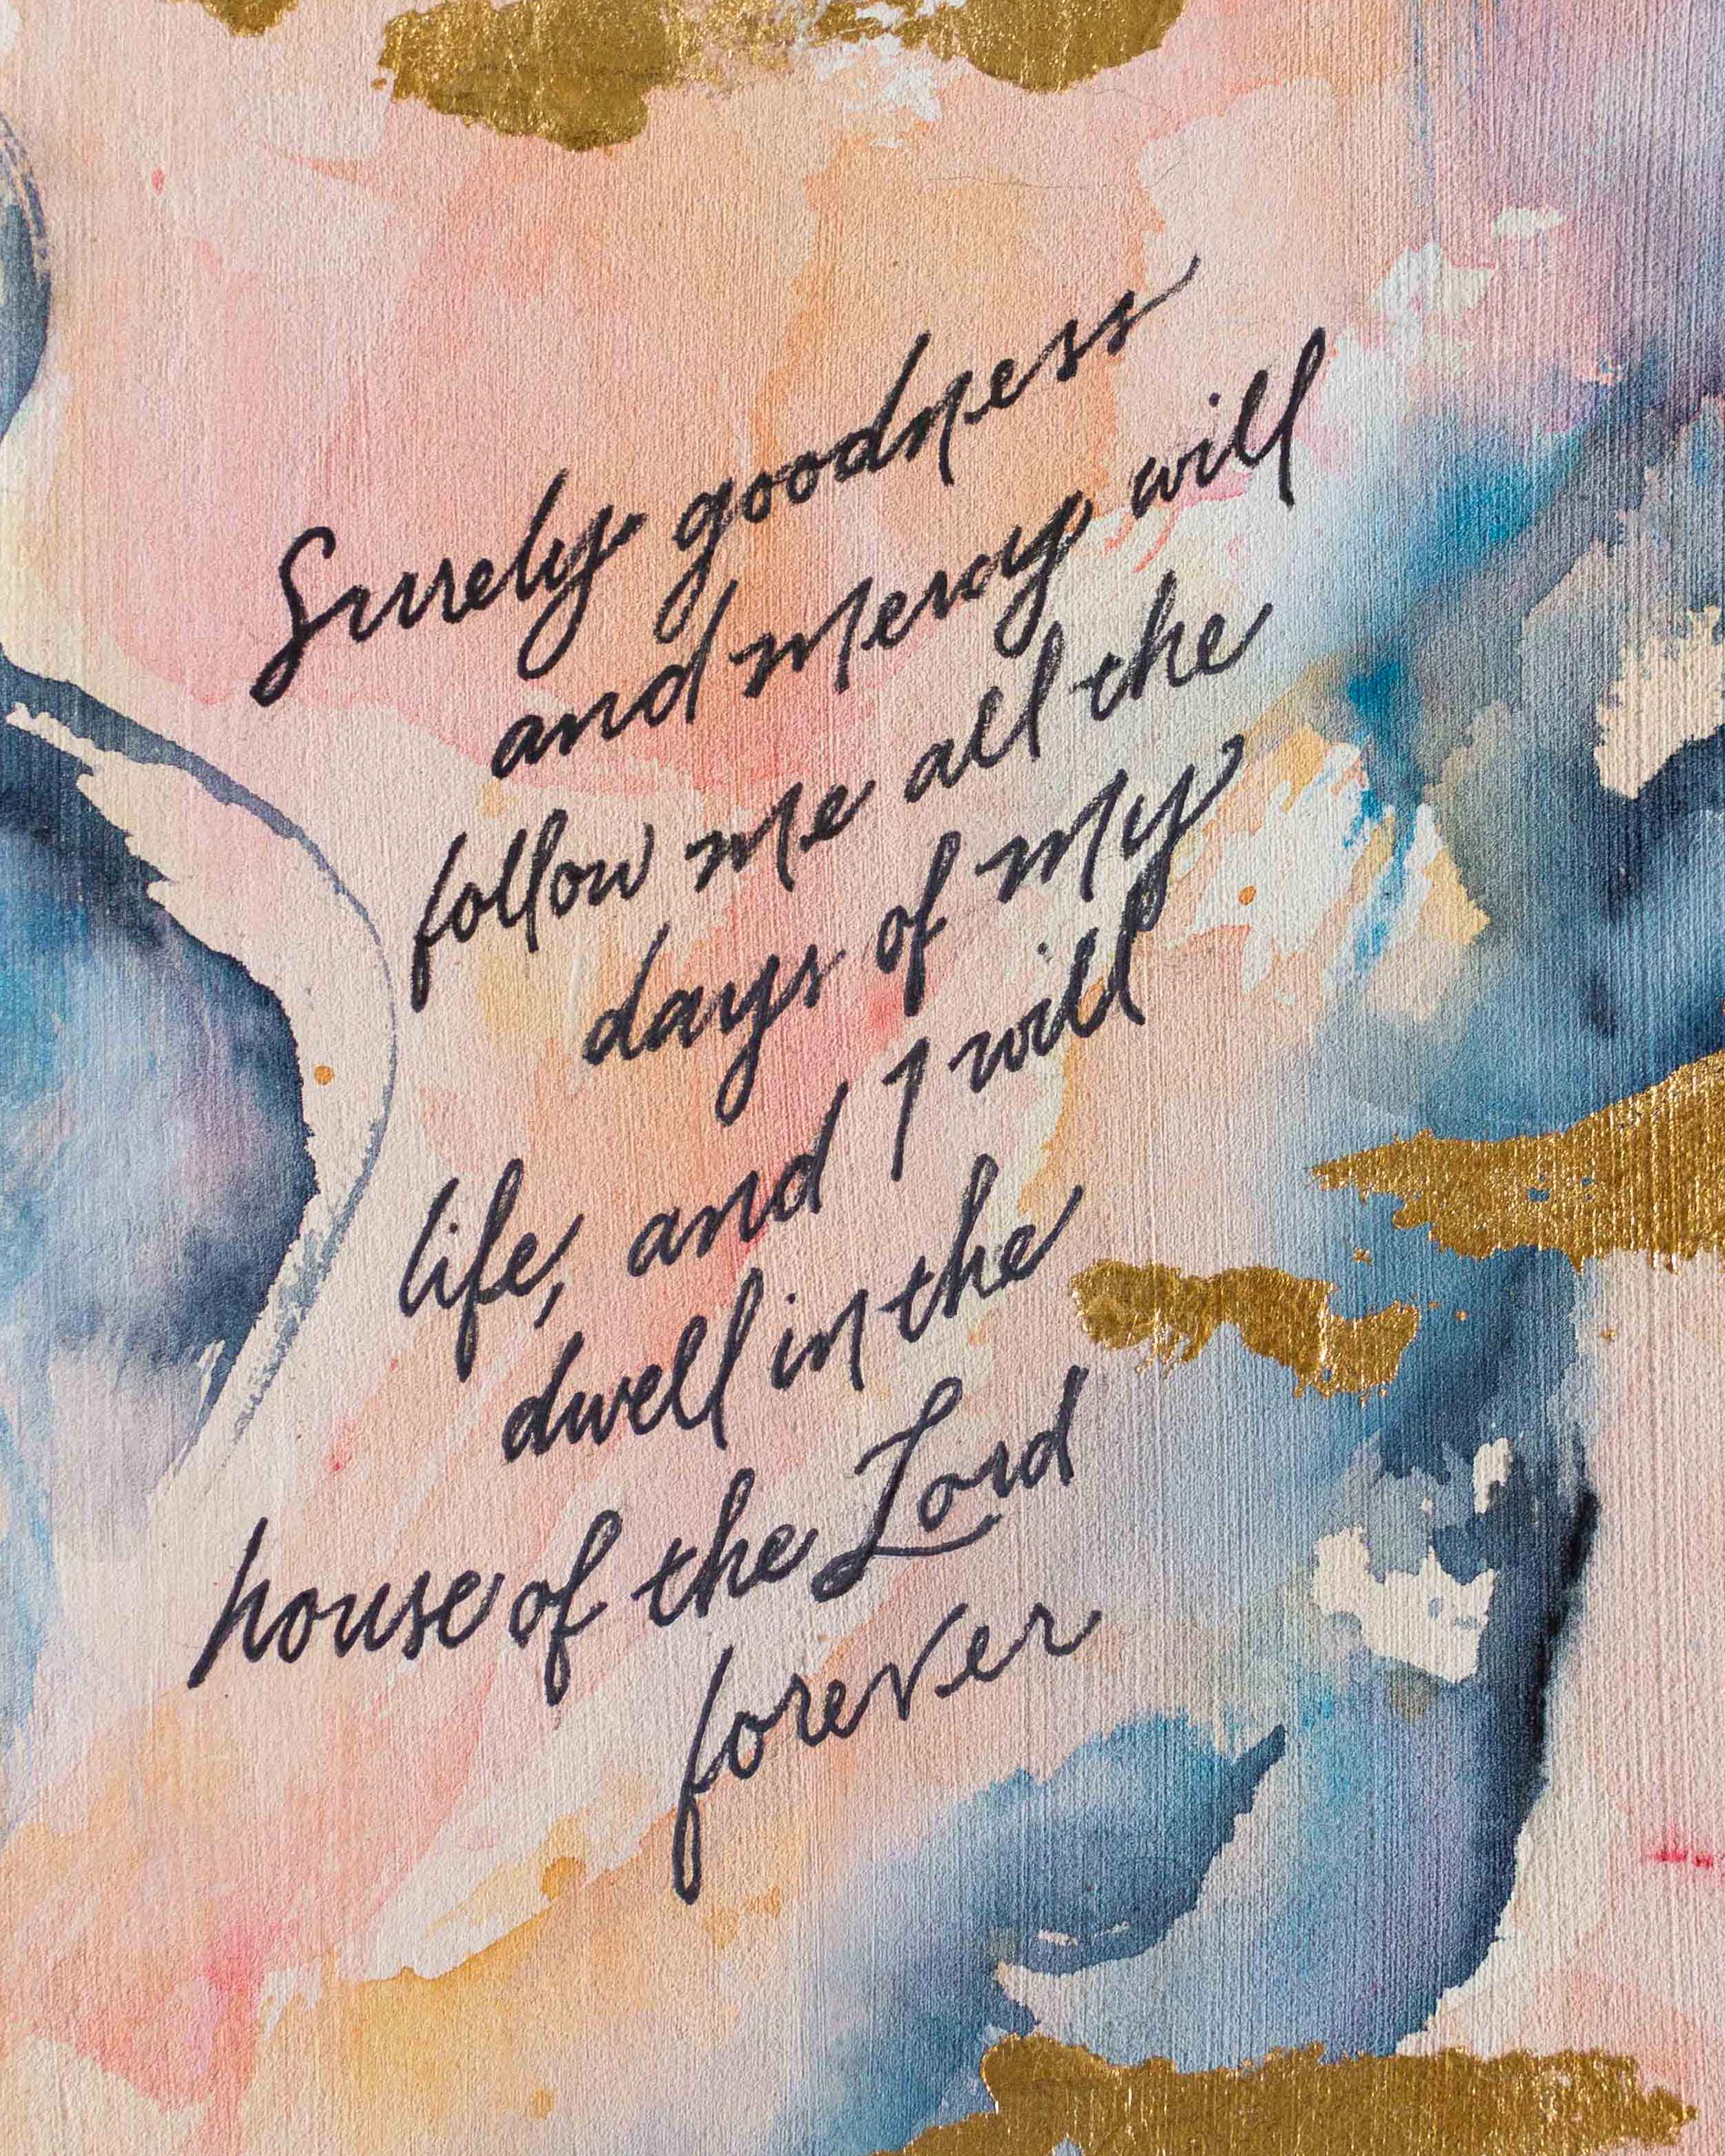 Surely goodness
and mercy will
follow me all the
days of my
life, and I will
dwell in the
house of the Lord
forever